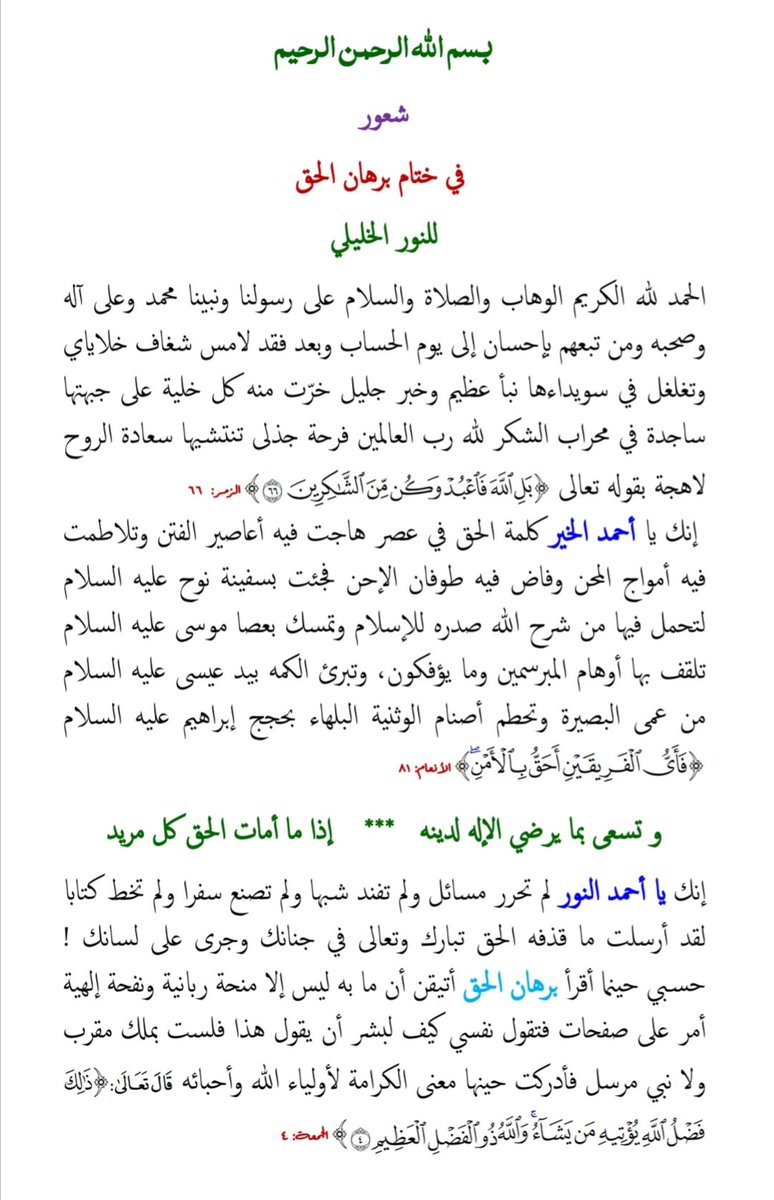 بسم الله الرحمن الرحيم
شعور
في ختام برهان الحق
للنور الخليلي
الحمد لله الكريم الوهاب والصلاة والسلام على رسولنا ونبينا محمد وعلى آله
وصحبه ومن تبعهم بإحسان إلى يوم الحساب وبعد فقد لامس شغاف خلاياي
وتغلغل في سويداءها نبأ عظيم وخبر جليل خرّت منه كل خلية على جبهتها
ساجدة في محراب الشكر لله رب العالمين فرحة جذلى تنتشيها سعادة الروح
لاهجة بقوله تعالى ﴿بَلِ ٱللَّهَ فَٱعۡبُدۡ وَكُن مِّنَ ٱلشَّٰكِرِينَ ٦٦﴾ الزمر: ٦٦
إنك يا أحمد الخير كلمة الحق في عصر هاجت فيه أعاصير الفتن وتلاطمت
فيه أمواج المحن وفاض فيه طوفان الإحن فجئت بسفينة نوح عليه السلام
لتحمل فيها من شرح الله صدره للإسلام وتمسك بعصا موسى عليه السلام
تلقف بها أوهام المبرسمين وما يؤفكون، وتبرئ الكمه بيد عيسى عليه السلام
من عمى البصيرة وتحطم أصنام الوثنية البلهاء بحجج إبراهيم عليه السلام
﴿فَأَيُّ ٱلۡفَرِيقَيۡنِ أَحَقُّ بِٱلۡأَمۡنِۖ﴾ الأنعام: ٨١
و تسعى بما يرضي الإله لدينه *** إذا ما أمات الحق كل مريد
إنك يا أحمد النور لم تحرر مسائل ولم تفند شبها ولم تصنع سفرا ولم تخط كتابا
لقد أرسلت ما قذفه الحق تبارك وتعالى في جنانك وجرى على لسانك !
حسبي حينما أقرأ برهان الحق أتيقن أن ما به ليس إلا منحة ربانية ونفحة إلهية
أمر على صفحات فتقول نفسي كيف لبشر أن يقول هذا فلست بملك مقرب
ولا نبي مرسل فأدركت حينها معنى الكرامة لأولياء الله وأحبائه قَالَ تَعَالَىٰ: ﴿ذَٰلِكَ
فَضۡلُ ٱللَّهِ يُؤۡتِيهِ مَن يَشَآءُۚ وَٱللَّهُ ذُو ٱلۡفَضۡلِ ٱلۡعَظِيمِ ٤﴾ الجمعة: ٤